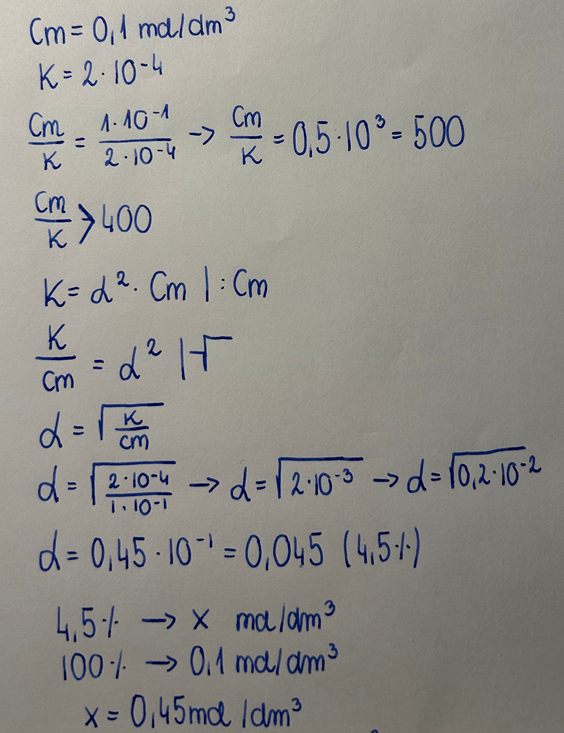 Cm = 0,1 mol/dm³
K = 2·10⁻⁴
Cm/K = 1·10⁻¹/2·10⁻⁴ → Cm/K = 0,5·10³ = 500
Cm/K > 400
K = α²· Cm | : Cm
K/Cm = α² | √
α = √(K/Cm)
α = √(2·10⁻⁴/1·10⁻¹) → α = √(2·10⁻³) → α = √(0,2·10⁻²)
α = 0,45·10⁻¹ = 0,045 (4,5%)
4,5% → x mol/dm³
100% → 0,1 mol/dm³
x = 0,45 mol/dm³